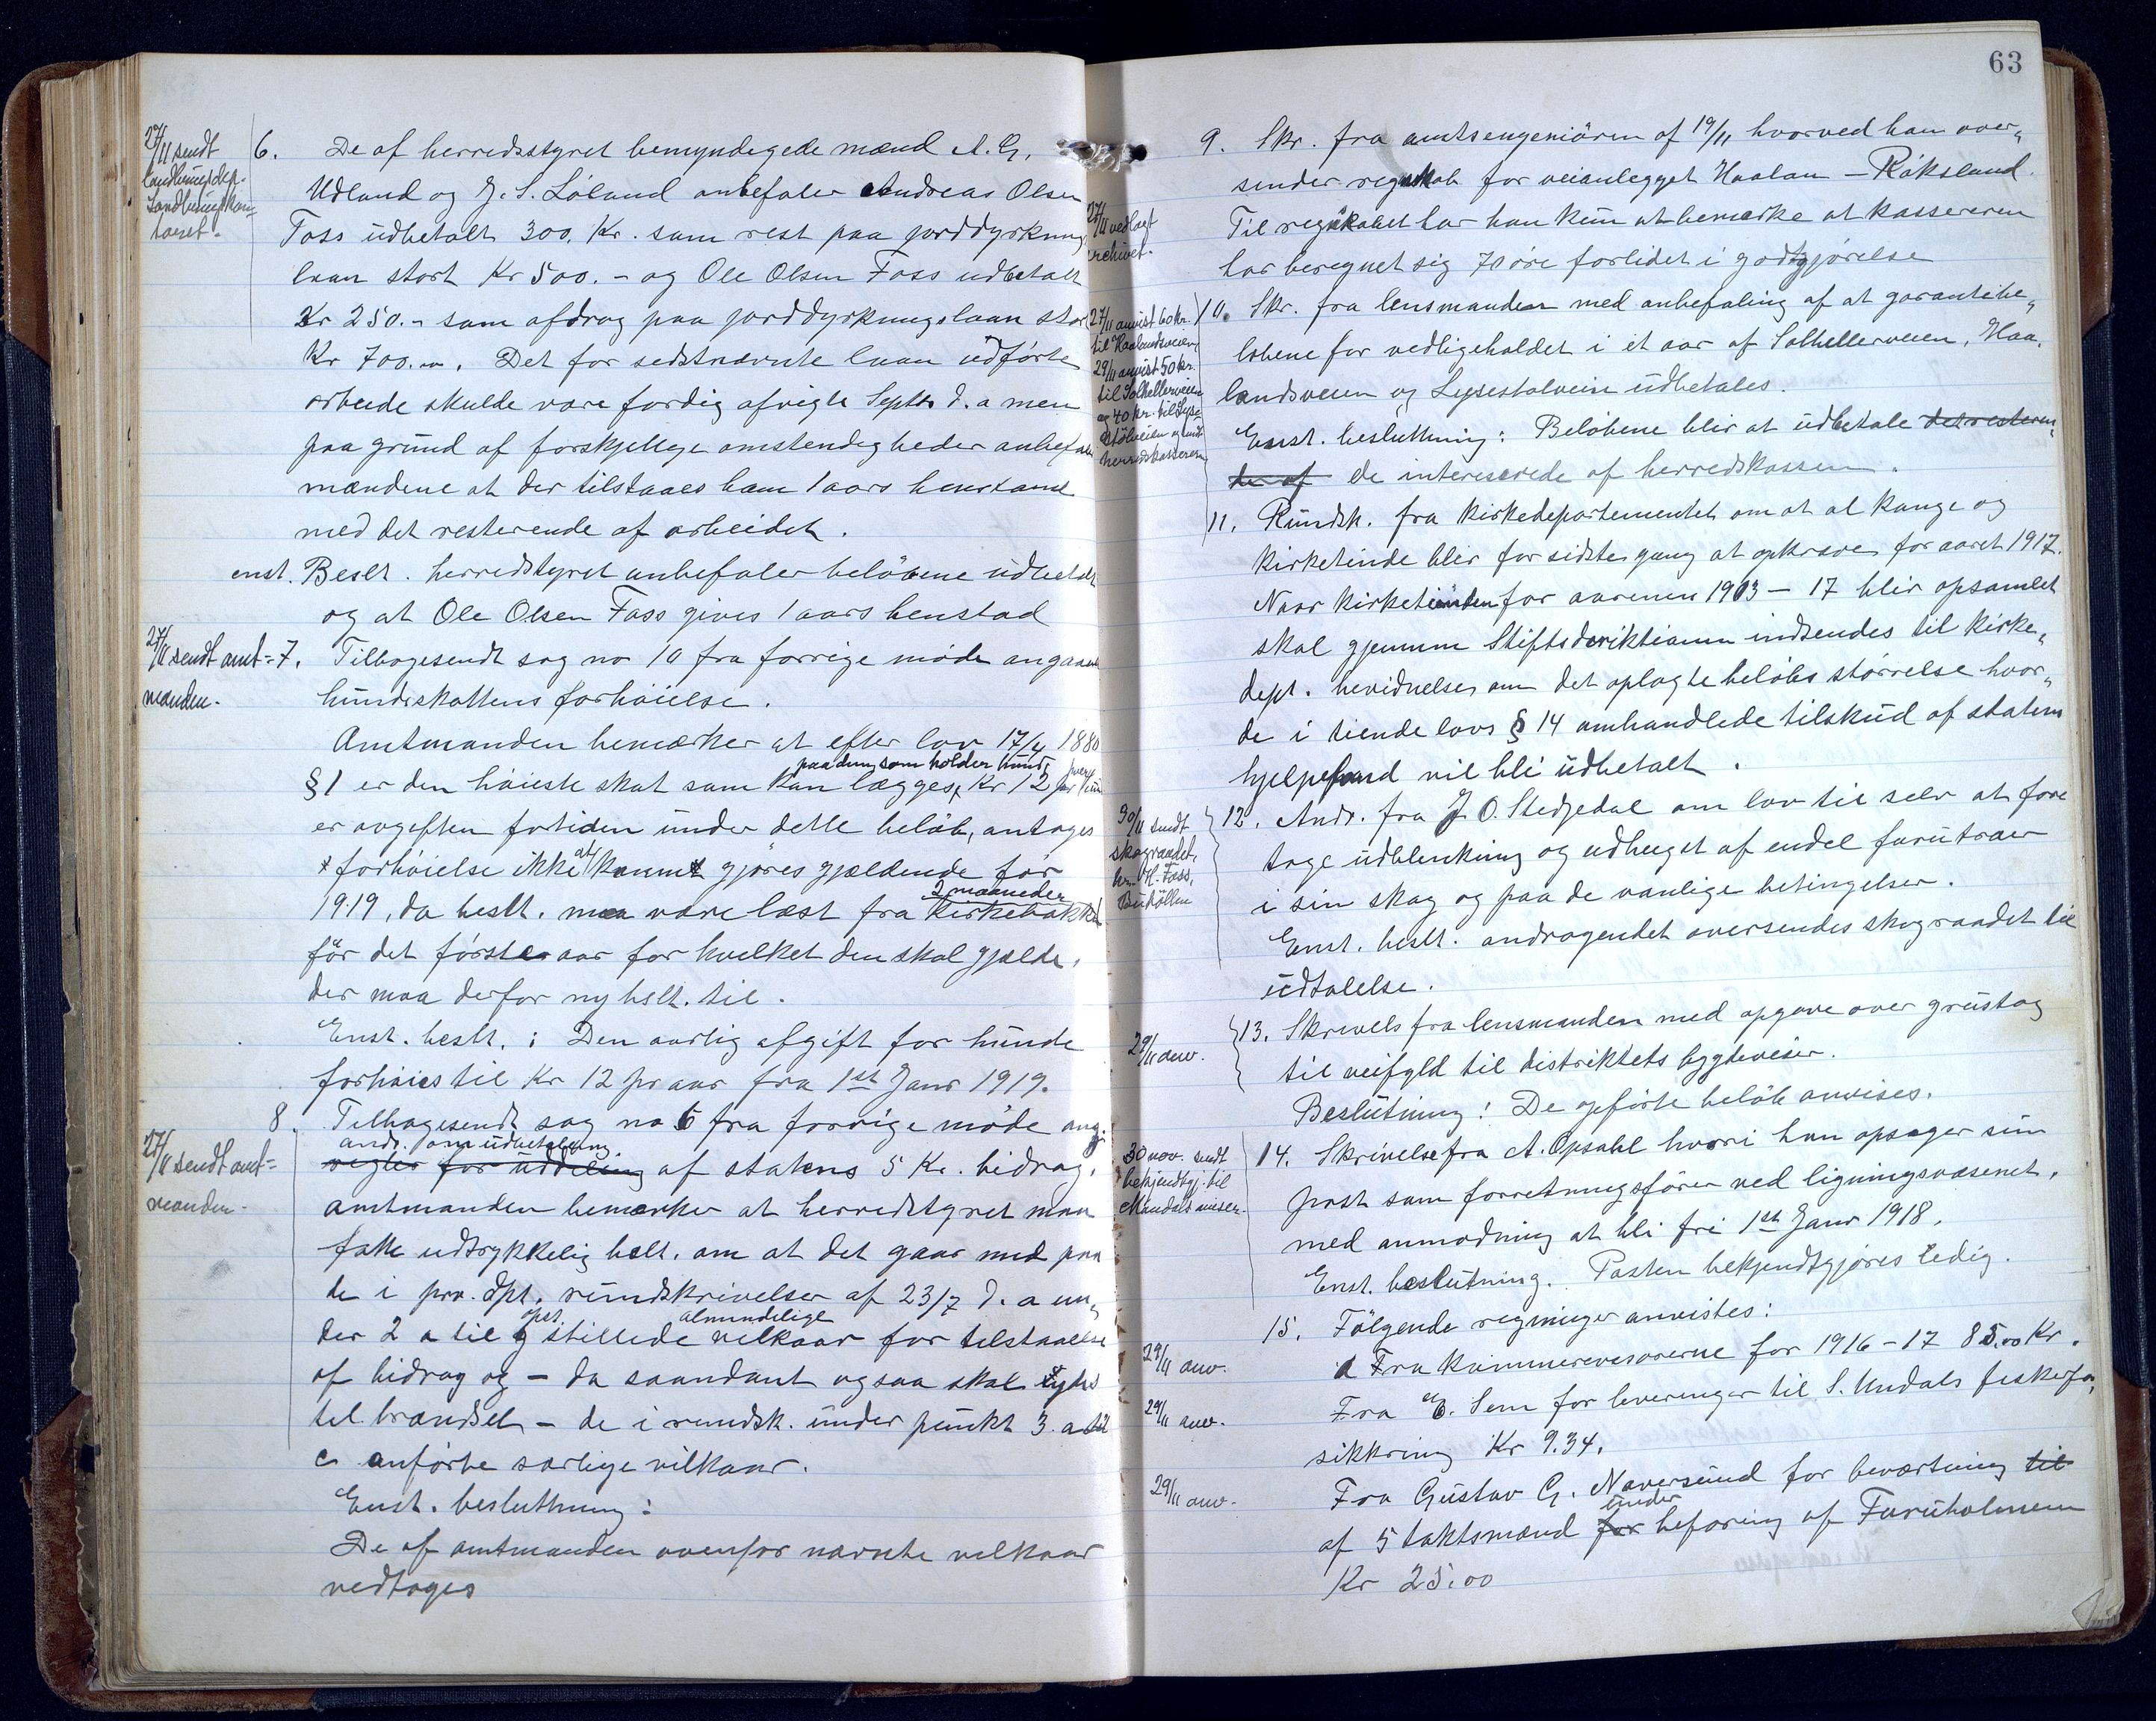 27/11 sendt
landbrugsdep.
Landbrugskon
toret.
6. De af herredsstyret bemyndegede mænd A. G.
Udland og J. S. Löland anbefaler Andreas Olsen
Foss üdbetalt 300. Kr. som rest paa jorddyrkning
laan stort Kr 500.- og Ole Olsen Foss udbetalt
Kr 250.- som afdrag paa jorddyrkningslaan stor
Kr 700.00. Det for sidstnævnte laan üdförte
arbeide skulde være færdig afvigte Septbr d. a men
paa gründ af forskjellige omstendigheder anbefaler
mændene at der tilstaaes ham 1 aars henstand
med det resterende af arbeidet.
enst. Beslt. herredstyret anbefaler belöbene üdbetalt
og at Ole Olsen Foss gives 1 aars henstad
27/11 sendt amt=
manden.
7. Tilbagesendt sag no 10 fra forrige möde angaaende
hündeskattens forhöielse.
Amtmanden bemærker at efter lov 17/4 1880
paa dem som holder hund, hver
§1 er den höieste skat som kan lægges, Kr 12 pr
er avgiften fortiden ünder dette belöb, antages
forhöielse ikke at künne gjöres gjældende för
2 maaneder
1919, da beslt. maa være læst fra kirkebakken
för det förste aar for hvilket den skal gjælde.
der maa derfor ny beslt. til.
Enst. beslt. : Den aarlig afgift for hünde
forhöies til Kr 12 pr aar fra 1st Janr 1919.
27/11 sendt amt=
manden.
8. Tilbagesendt sag no 6 fra forrige möde ang.
andr. om üdbetaling
regler for üddeling af statens 5 Kr. bidrag.
amtmanden bemærker at herredstyret maa
fatte udtrykkelig beslt. om at det gaar med paa
de i prov. dpt. ründskrivelser af 23/7 d. a un„
opst. almindelige
der 2 a til g stillede vilkaar for tilstaaelse
af bidrag og – da saadant ogsaa skal ydes
til brændsel – de i rundsk. ünder pünkt 3. a til
c anförte særlige vilkaar.
Enst. besluttning:
De af amtmanden ovenfor nævnte vilkaar
vedtages
63
27/11 vedlagt
archivet.
9. Skr. fra amtsengeniören af 19/11 hvorved han over„
sender regnskab for veianlegget Haalan – Röksland.
Til regnskabet har han kün at bemærke at kassereren
har beregnet sig 70 öre forlidet i godtgjörelse
27/11 anvist 60 kr.
til Haalandsveien,
29/11 anvist 50 kr.
til Solhellerveien
og 40 kr. til Lyse
stölveien og sendt
herredskasseren
10. Skr. fra lensmanden med anbefaling af at garantibe„
löbene for vedligeholdet i et aar af Solhellerveien, Haa„
landsveien og Lysestølvein üdbetales.
Enst. besluttning: Belöbene blir at üdbetale det resteren„
de af de interesserede af herredskassen.
11. Rundsk. fra kirkedepartementet om at al konge og
kirketiende blir for sidste gang at opkræve for aaret 1917.
Naar kirketienden for aarenen 1903 – 17 blir opsamlet
skal gjennem Stiftsderiktionen indsendes til kirke„
dept. bevidnelse om det oplagte belöbs störrelse hvor„
de i tiende lovs § 14 omhandlede tilsküd af statens
hjelpefond vil bli üdbetalt.
30/11 sendt
skograadet,
hr. H. Foss,
12. Andr. fra J. O. Stedjedal om lov til selv at fore
tage üdblenkning og udhuget af endel fürütræer
i sin skog og paa de vanlige betingelser.
Enst. beslt. andragendet oversendes skograadet til
üdtalelse.
29/11 anv.
13. Skrivels fra lensmanden med opgave over grüstag
til veifyld til distriktets bygdeveier.
Beslütning! De opförte belöb anvises.
30 nov. sendt
bekjendtgj. til
Mandals avisen.
14. Skrivelse fra A. Opsahl hvori han opsiger sin
post som forretningsförer ved ligningsvæsenet,
med anmodning at bli fri 1st Janr 1918.
Enst. beslütning. Posten bekjendtgjöres ledig.
15. Fölgende regninger anvistes:
29/11 anv.
Fra kommunerevisorerne for 1916 – 17 85.00 Kr.
29/11 anv.
Fra E. Sem for leveringer til S. Undals fiskefor„
sikkring Kr 9.34.
29/11 anv.
Fra Güstav G. Naversünd for bevertning til
ünder
af 5 taktsmænd for befaring af Fürüholmen
Kr 25.00